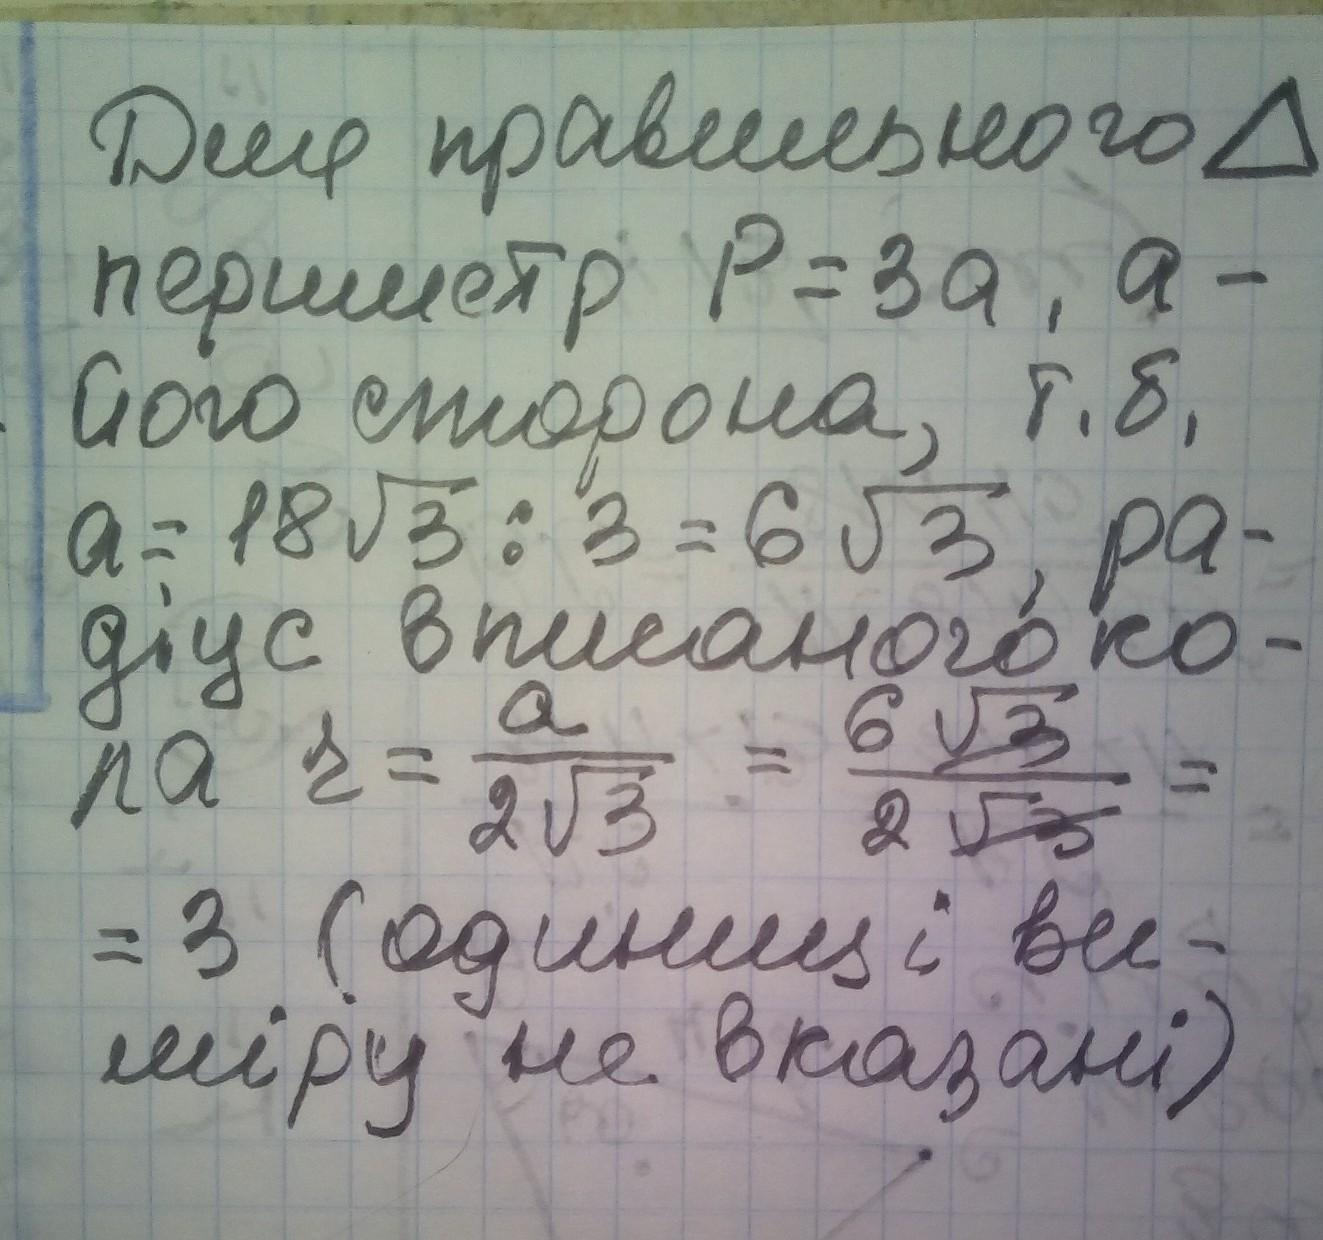 Для правильного △
периметр P = 3a, a -
його сторона, т.б.
a = 18√3 : 3 = 6√3, ра-
діус вписаного ко-
ла r = a/(2√3) = 6√3/(2√3) =
= 3 (одиниці ви-
міру не вказані)